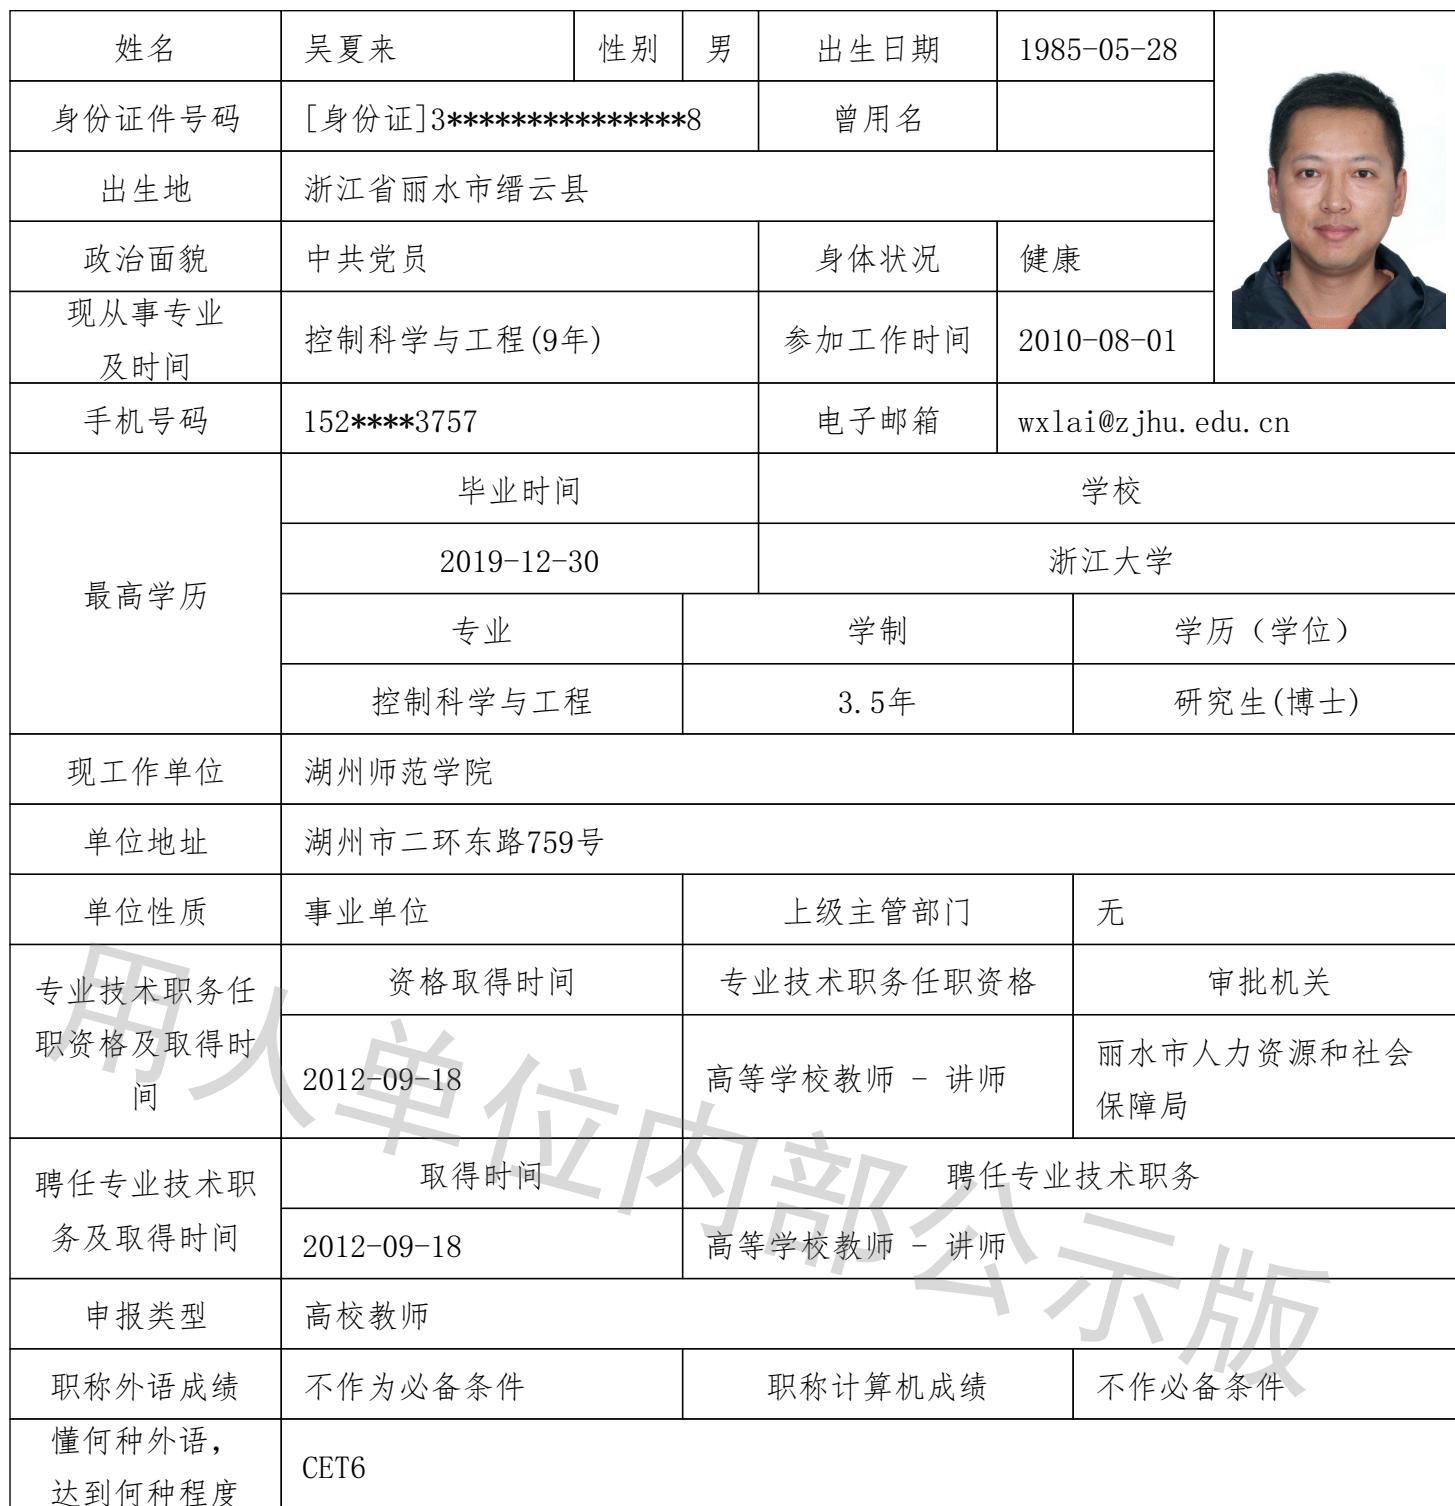 姓名 吴夏来 性别 男 出生日期 1985-05-28
身份证件号码 [身份证]3***************8 曾用名
出生地 浙江省丽水市缙云县
政治面貌 中共党员 身体状况 健康
现从事专业
及时间
控制科学与工程(9年) 参加工作时间 2010-08-01
手机号码 152****3757 电子邮箱 wxlai@zjhu.edu.cn
最高学历
毕业时间 学校
2019-12-30 浙江大学
专业 学制 学历（学位）
控制科学与工程 3.5年 研究生(博士)
现工作单位 湖州师范学院
单位地址 湖州市二环东路759号
单位性质 事业单位 上级主管部门 无
专业技术职务任
职资格及取得时
间
资格取得时间 专业技术职务任职资格 审批机关
2012-09-18 高等学校教师 - 讲师
丽水市人力资源和社会
保障局
聘任专业技术职
务及取得时间
取得时间 聘任专业技术职务
2012-09-18 高等学校教师 - 讲师
申报类型 高校教师
职称外语成绩 不作为必备条件 职称计算机成绩 不作必备条件
懂何种外语，
达到何种程度
CET6
用人单位内部公示版